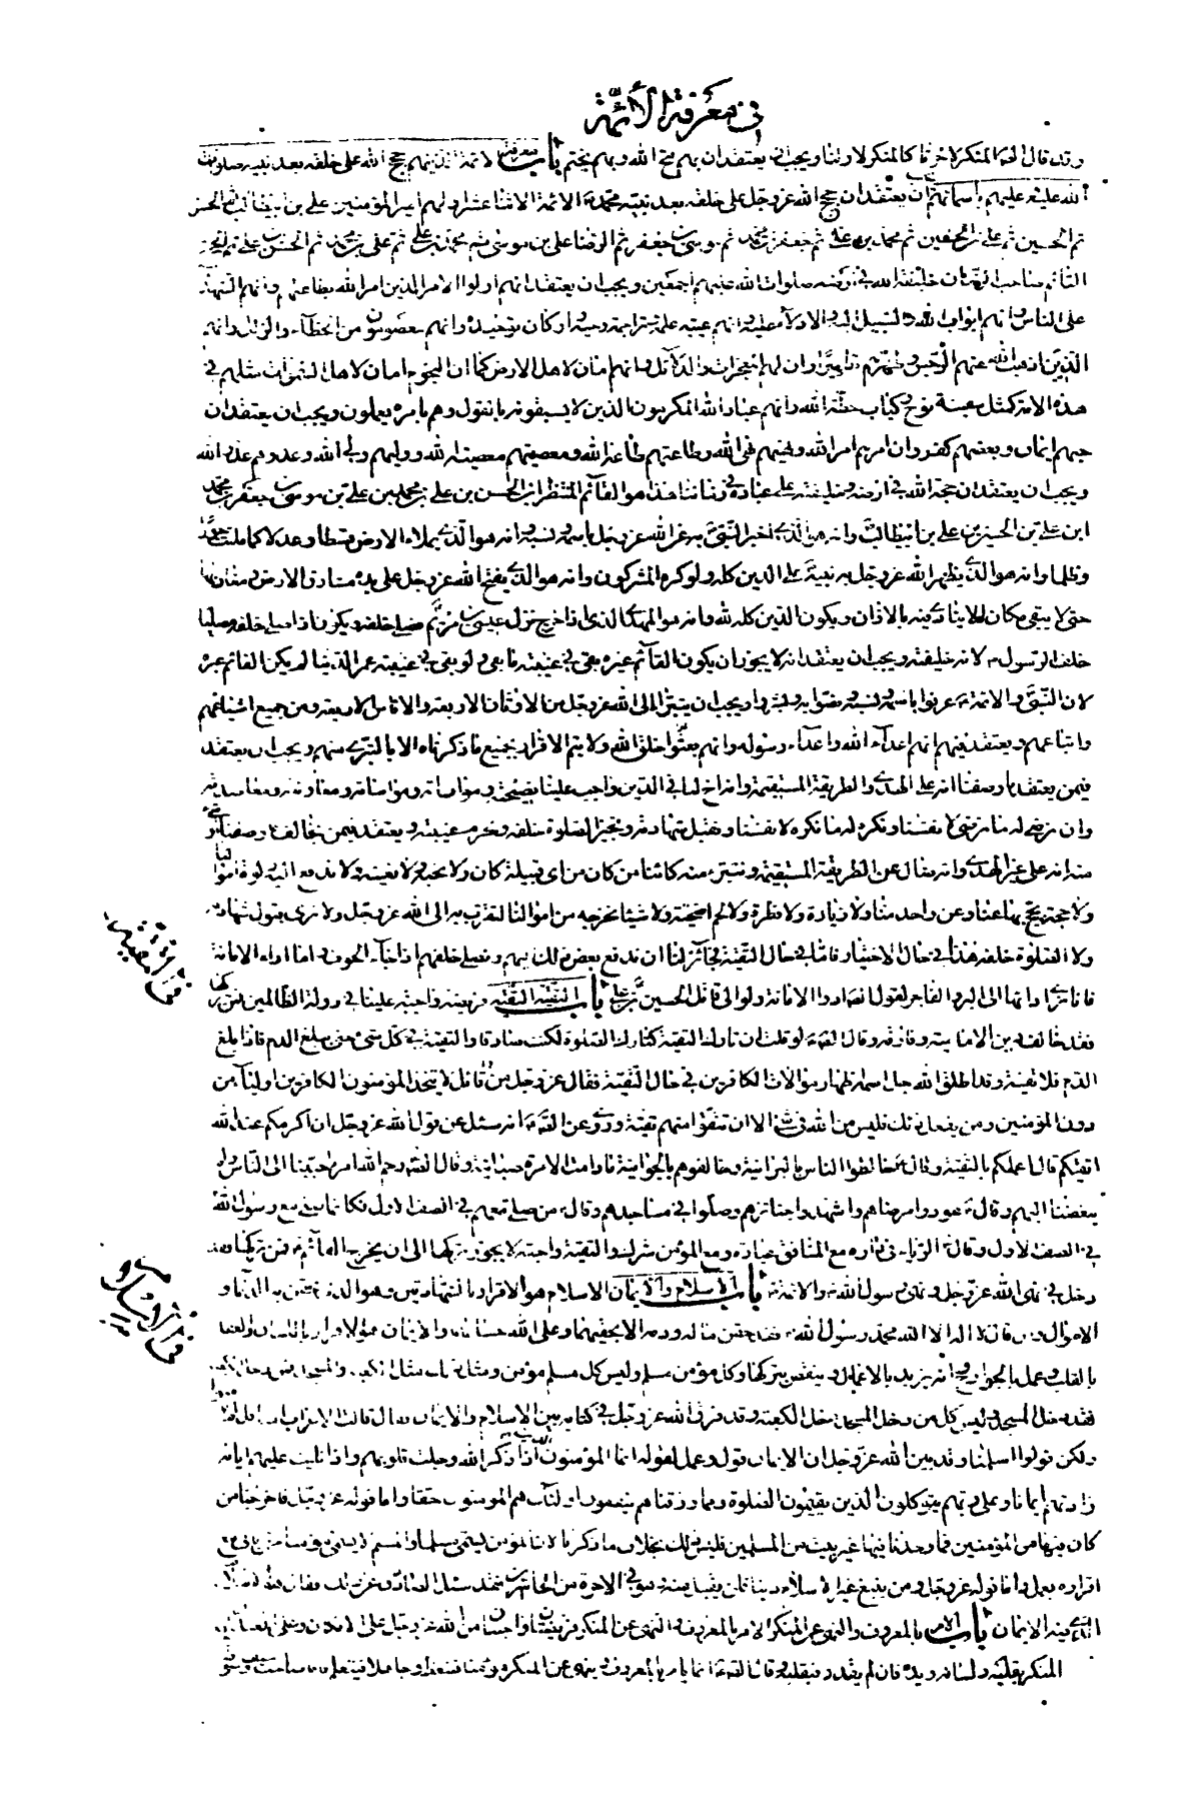 في معرفة الأئمة
وقد قال المنكر لآخرنا كالمنكر لأولنا ويجب ان يعتقد ان بهم فتح الله وبهم يختم باب معرفة الائمة الذين هم حجج الله على خلقه بعد نبيه صلوات
الله عليه وعليهم باسمائهم ان يعتقد ان حجج الله عز وجل على خلقه بعد نبيه محمد الائمة الاثنا عشر اولهم امير المؤمنين علي بن ابيطالب ثم الحسن
ثم الحسين ثم علي بن الحسين ثم محمد بن علي ثم جعفر بن محمد ثم موسى بن جعفر ثم الرضا علي بن موسى ثم محمد بن علي ثم علي بن محمد ثم الحسن بن علي ثم الحجة
القائم صاحب الزمان خليفة الله في ارضه صلوات الله عليهم اجمعين ويجب ان يعتقد انهم اولوا الامر الذين امر الله بطاعتهم وانهم الشهداء
على الناس وانهم ابواب الله والسبيل اليه والادلاء عليه وانهم عيبة علمه وتراجمة وحيه واركان توحيده وانهم معصومون من الخطاء والزلل وانهم
الذين اذهب الله عنهم الرجس وطهرهم تطهيرا وان لهم المعجزات والدلائل وانهم امان لاهل الارض كما ان النجوم امان لاهل السموات ومثلهم في
هذه الامة كمثل سفينة نوح وكباب حطة الله وانهم عباد الله المكرمون الذين لا يسبقونه بالقول وهم بامره يعملون ويجب ان يعتقد ان
حبهم ايمان وبغضهم كفر وان امرهم امر الله ونهيهم نهى الله وطاعتهم طاعة الله ومعصيتهم معصية الله ووليهم ولي الله وعدوهم عدو الله
ويجب ان يعتقد ان حجة الله في ارضه وخليفته على عباده في زماننا هذا هو القائم المنتظر ابن الحسن بن علي بن محمد بن علي بن موسى بن جعفر بن محمد
ابن علي بن الحسين بن علي بن ابيطالب وانه هو الذي اخبر النبي به عن الله عز وجل باسمه ونسبه وانه هو الذي يملاء الارض قسطا وعدلا كما ملئت جورا
وظلما وانه هو الذي يظهر الله عز وجل به نبيه على الدين كله ولو كره المشركون وانه هو الذي يفتح الله عز وجل على يده مشارق الارض ومغاربها
حتى لا يبقى مكان الا ينادى فيه بالاذان ويكون الدين كله لله وانه هو المهدي الذي اذا خرج نزل عيسى بن مريم فصلى خلفه ويكون اذا صلى خلفه مصليا
خلف الرسول لانه خليفته ويجب ان يعتقد انه لا يجوز ان يكون القائم غيره بقي في غيبته ما بقي ولو بقي في غيبته عمر الدنيا لم يكن القائم غيره
لان النبي والائمة عرفوا باسمه ونسبه ونصوا به وبشروا ويجب ان يتبرأ الى الله عز وجل من الاوثان الاربعة والاناث الاربعة ومن جميع اشياعهم
واتباعهم ويعتقد فيهم انهم اعداء الله واعداء رسوله وانهم شر خلق الله ولا يتم الاقرار بجميع ما ذكرناه الا بالتبري منهم ويجب ان يعتقد
فيمن يعتقد ما وصفنا انه على الهدى والطريقة المستقيمة وانه اخ لنا في الدين واجب علينا نصيحته ومواساته ومعاونته
وان نرضى له ما نرضى لانفسنا ونكره له ما نكره لانفسنا ونقبل شهادته ونجيز الصلوة خلفه ونحرم غيبته ويعتقد فيمن يخالف ما وصفناه
منه انه على غير الهدى وانه ضال عن الطريقة المستقيمة ونتبرء منه كائنا من كان من اى قبيلة كان ولا نحبه ولا نعينه ولا ندفع اليه زكوة اموالنا
ولا حجة يحج بها عنا وعن واحد منا ولا زيارة ولا فطرة ولا لحم اضحية ولا شيئا نخرجه من اموالنا لنتقرب به الى الله عز وجل ولا نرى قبول شهادته
ولا الصلوة خلفه هذا في حال الاختيار فاما في حال التقية فجائز لنا ان ندفع بعض ذلك اليهم ونصلي خلفهم اذا جاء الخوف واما اداء الامانة
فانا نرى اداءها الى البر والفاجر لقول ادوا الامانة ولو الى قاتل الحسين بن علي باب التقية التقية فريضة واجبة علينا في دولة الظالمين فمن تركها
فقد خالف دين الامامية وفارقه وقال لو قلت ان تارك التقية كتارك الصلوة لكنت صادقا والتقية في كل شئ حتى يبلغ الدم فاذا بلغ
الدم فلا تقية وقد اطلق الله جل اسمه اظهار موالات الكافرين في حال التقية فقال عز وجل من قائل لا يتخذ المؤمنون الكافرين اولياء من
دون المؤمنين ومن يفعل ذلك فليس من الله في شئ الا ان تتقوا منهم تقية وروى عن انه سئل عن قول الله عز وجل ان اكرمكم عند الله
اتقيكم قال اعملكم بالتقية وقال خالطوا الناس بالبرانية وخالفوهم بالجوانية ما دامت الامرة صبيانية وقال رحم الله امرء حببنا الى الناس ولم
يبغضنا اليهم وقال عودوا مرضاهم واشهدوا جنائزهم وصلوا في مساجدهم وقال من صلى معهم في الصف الاول فكانما صلى مع رسول الله
في الصف الاول وقال الرياء مع المنافق في داره عبادة ومع المؤمن شرك والتقية واجبة لا يجوز تركها الى ان يخرج القائم فمن تركها فقد
دخل في نهى الله عز وجل ونهى رسول الله والائمة باب الاسلام والايمان الاسلام هو الاقرار بالشهادتين وهو الذي يحقن به الدماء و
الاموال ومن قال لا اله الا الله محمد رسول الله فقد حقن ماله ودمه الا بحقيهما وعلى الله حسابه والايمان هو الاقرار باللسان وعقد
بالقلب وعمل بالجوارح وانه يزيد بالاعمال وينقص بتركها وكل مؤمن مسلم وليس كل مسلم مؤمن ومثل ذلك مثل الكعبة والمسجد فمن دخل الكعبة
فقد دخل المسجد وليس كل من دخل المسجد دخل الكعبة وقد فرق الله عز وجل في كتابه بين الاسلام والايمان فقال قالت الاعراب امنا قل لم تؤمنوا
ولكن قولوا اسلمنا وقد بين الله عز وجل ان الايمان قول وعمل لقوله انما المؤمنون الذين اذا ذكر الله وجلت قلوبهم واذا تليت عليهم اياته
زادتهم ايمانا وعلى ربهم يتوكلون الذين يقيمون الصلوة ومما رزقناهم ينفقون اولئك هم المؤمنون حقا واما قوله عز وجل فاخرجنا من
كان فيها من المؤمنين فما وجدنا فيها غير بيت من المسلمين فليس ذلك بخلاف ما ذكرنا لان المؤمن يسمى مسلما والمسلم لا يسمى مؤمنا حتى ياتي مع
اقراره بعمل واما قوله عز وجل ومن يبتغ غير الاسلام دينا فلن يقبل منه وهو في الاخرة من الخاسرين فقد سئل الصادق عن ذلك فقال هو الاسلام
الذي فيه الايمان باب الامر بالمعروف والنهى عن المنكر الامر بالمعروف والنهى عن المنكر فريضتان واجبتان من الله عز وجل على الامكان وعلى العبد ان
المنكر بقلبه ولسانه ويده فان لم يقدر فبقلبه وقال انما يامر بالمعروف وينهى عن المنكر مؤمنا فيتعظ او جاهلا فيتعلم فاما صاحب سيف وسوط
في التقية
في الاسلام و